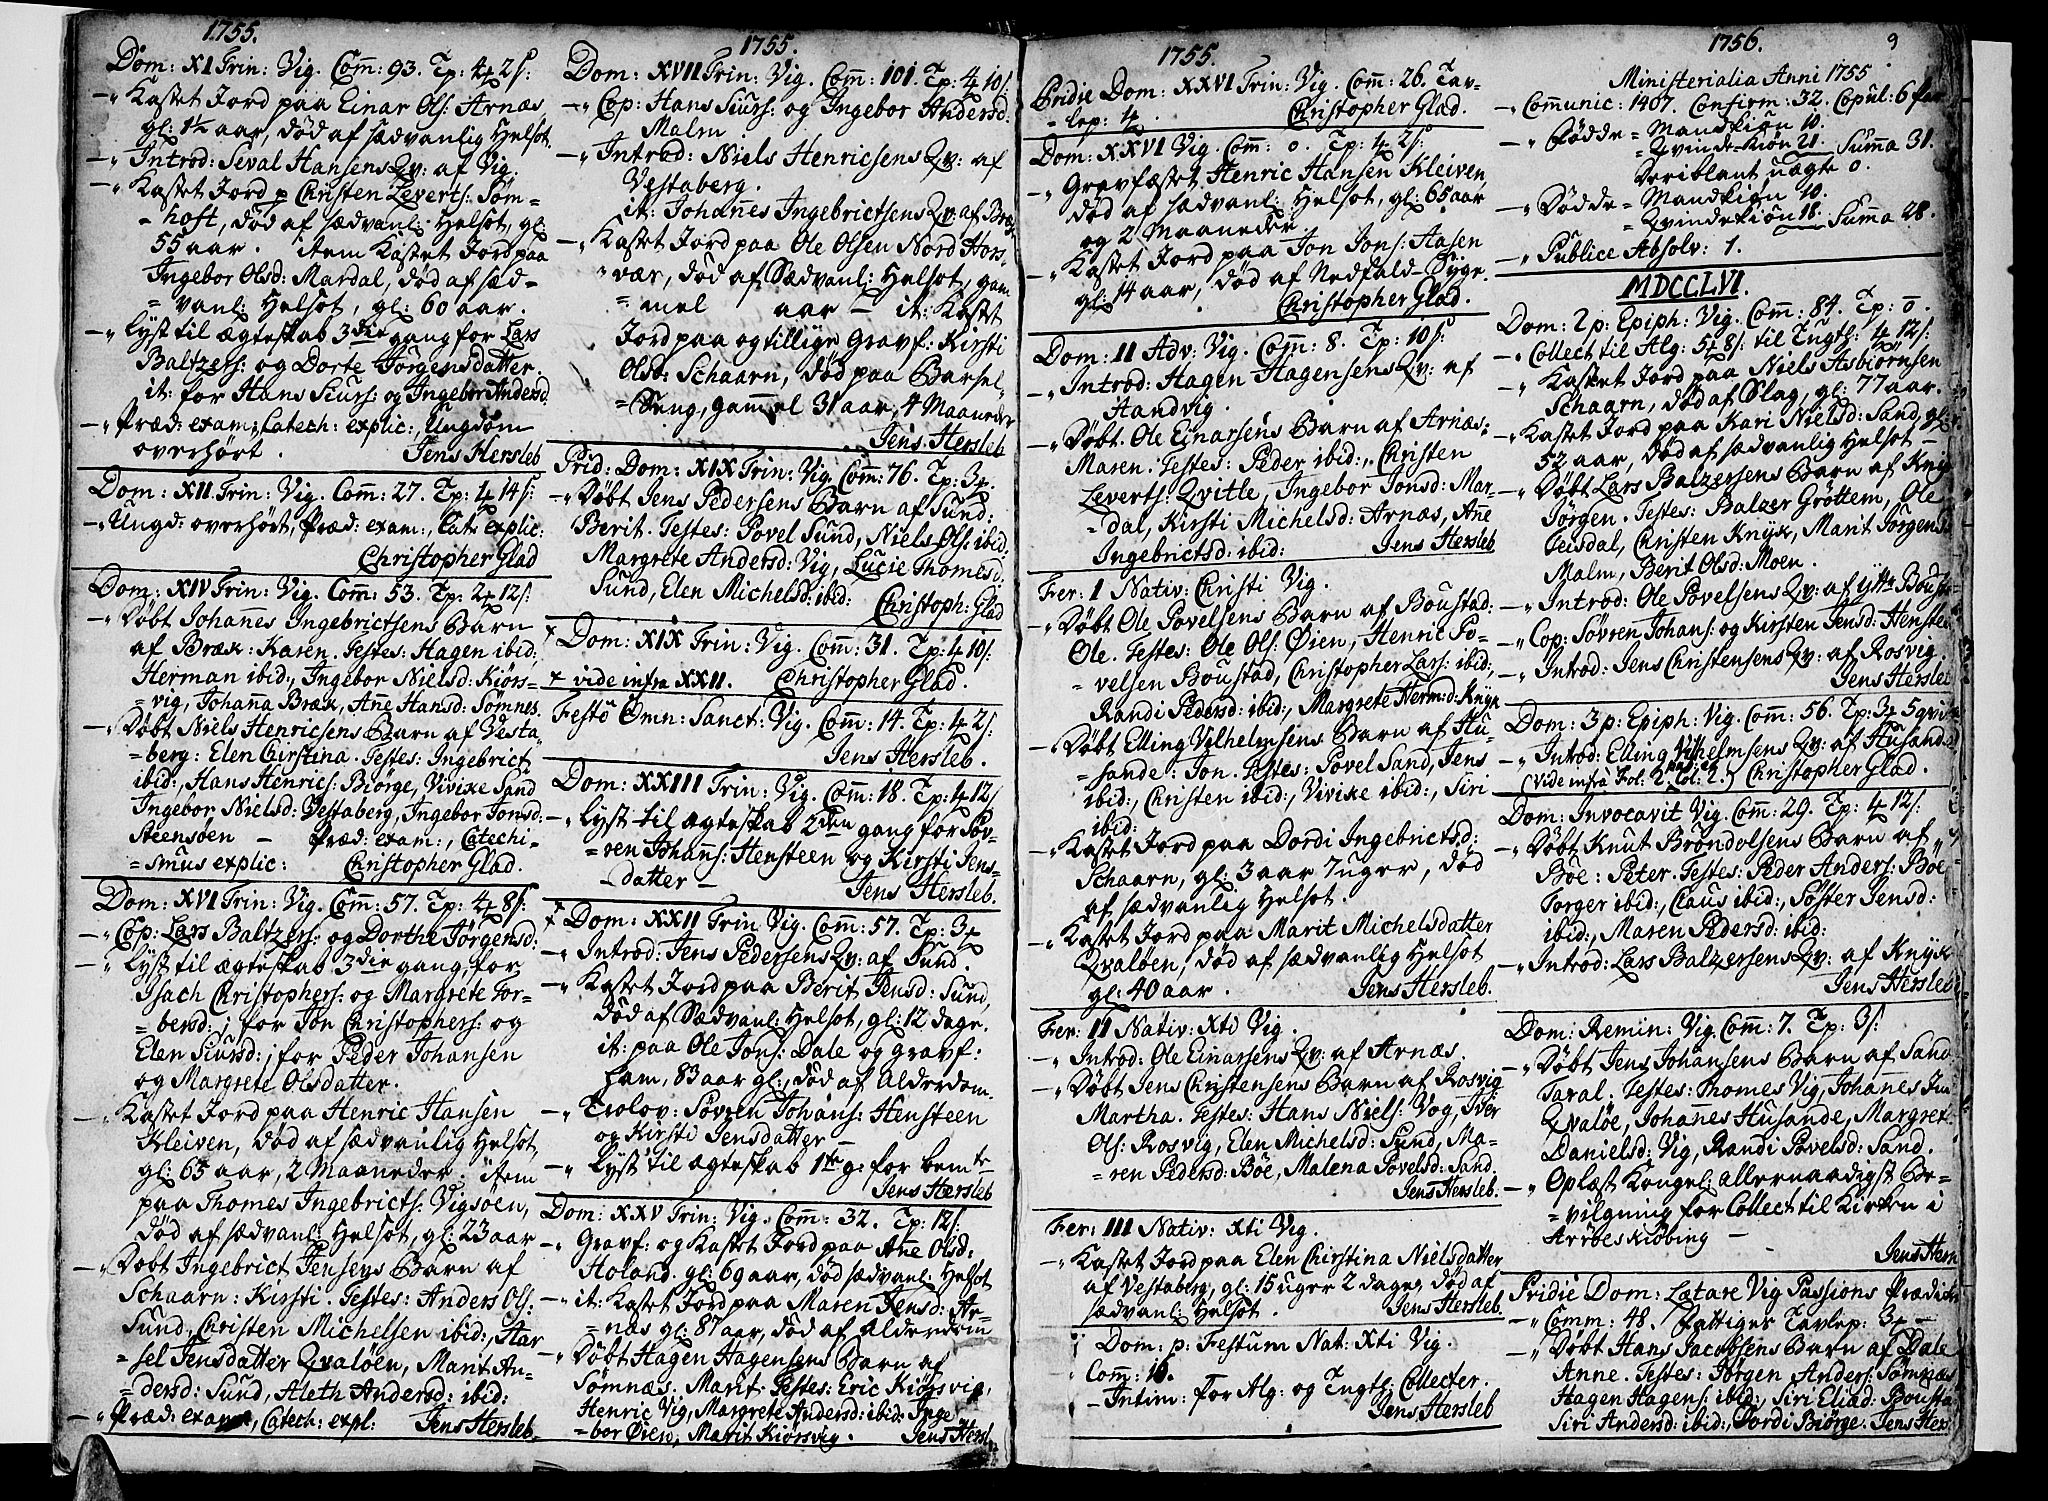 1755.
Dom: XI Trin: Vig. Com̄: 93. Tp: 4 2 s:
—„ Kastet Jord paa Einar Ols: Arnæs
gl: 1½ aar, død af sædvanlig Helsot.
—„ Introd: Seval Hansens Qv: af Vig.
—„ Kastet Jord p Christen Leverts: Søm-
-hoft, død af sædvanl: Helsot, gl
55 aar. item Kastet Jord paa
Ingebor Olsd: Mardal, død af sæd-
=vanl: Helsot, gl: 60 aar.
—„ Lyst til ægteskab 3die gang for Lars
Baltzers: og Dorte Jørgensdatter.
it: for Hans Siurs: og Ingebor Andersd.
—„ Præd: exam:, Catech: explic:, Ungdom
overhørt. Jens Hersleb
Dom: XII Trin: Vig. Com̄: 27. Tp: 14 s:
—„ Ungd: overhørt, Præd: exam:, Cat: explic:
Christopher Glad
Dom: XIV Trin: Vig. Com̄: 53. Tp: 2 12 s:
—„ Døbt Johannes Ingebrictsens Barn
af Bræk: Karen. Testes: Hagen ibid:,
Herman ibid:, Ingebor Nielsd: Kiørs-
=vig, Johanna Bræk, Ane Hansd: Sømnes.
—„ Døbt Niels Henricsens Barn af Vesta-
=berg: Elen Chirstina. Testes: Ingebrict
ibid:, Hans Henrics: Biørge, Vivike Sand
Ingebor Nielsd: Vestaberg, Ingebor Jonsd:
Steensøen — Præd: exam:, Catechi-
=smus explic: Christopher Glad.
Dom: XVI Trin: Vig. Com̄: 57. Tp: 4 8 s:
—„ Cop: Lars Baltzers: og Dorthe Jørgensd:
—„ Lyst til ægteskab 3die gang, for
Isach Christophers: og Margrete Tor-
=bersd:; for Jon Christophers: og
Elen Siursd:; for Peder Johansen
og Margrete Olsdatter.
—„ Kastet Jord paa Henric Hansen
Kleiven, død af sædvanlig Helsot,
gl: 65 aar, 2 Maaneder item
paa Thomes Ingebricts: Vigsøen,
død af sædvanl: Helsot, gl: 23 aar
—„ Døbt Ingebrict Jensens Barn af
Schaarn: Kirsti. Testes: Anders Ols:
Sund, Christen Michelsen ibid:,
=sel Jensdatter Qvaløen, Marit An-
=dersd: Sund, Aleth Andersd: ibid:
—„ Præd: exam, Catech: expl: Jens Hersleb.
1755.
Dom: XVII Trin: Vig. Com̄: 101. Tp: 4 10 s:
—„ Cop: Hans Siurs: og Ingebor Andersd:
Malm
—„ Introd: Niels Henricsens Qv: af
Vestaberg.
it: Johannes Ingebrictsens Qv: af Bræk
—„ Kastet Jord paa Ole Olsen Nord Hors-
=vær, død af Sædvanl: Helsot, gam
=mel aar — it: Kastet
Jord paa og tillige Gravf: Kirsti
Olsd: Schaarn, død paa Barsel
=Seng, gammel 31 aar, 4 Maaneder
Jens Hersleb
Prid: Dom: XIX Trin: Vig. Com̄: 76. Tp: 3
—„ Døbt Jens Pedersens Barn af Sund:
Berit. Testes: Povel Sund, Niels Ols: ibid:
Margrete Andersd: Vig, Lucie Thomesd:
Sund, Elen Michelsd: ibid: Christoph: Glad
Dom: XIX Trin: Vig. Com̄: 31. Tp: 4 10 s:
vide infra XXII. Christopher Glad.
Festo Omn: Sanct: Vig. Com̄: 14. Tp: 4 2 s:
Jens Hersleb.
Dom: XXIII Trin: Vig. Com̄: 18. Tp: 4 12 s
—„ Lyst til ægteskab 2den gang for Søv-
=ren Johans: Hensteen og Kirsti Jens-
-datter — Jens Hersleb.
Dom: XXII Trin Vig. Com̄: 57. Tp: 3
—„ Introd: Jens Pedersens Qv: af Sund.
—„ Kastet Jord paa Berit Jensd: Sund,
død af Sædvanl: Helsot, gl: 12 dage.
it: paa Ole Jons: Dale og gravf:
ham, 83 aar gl:, død af Alderdom.
—„ Trolov: Søvren Johans: Hensteen
og Kirsti Jensdatter —
—„ Lyst til ægteskab 1te g: for bemte
Jens Hersleb
Dom: XXV Trin: Vig. Com̄: 32. Tp: 12 s:
—„ Gravf: og Kastet Jord paa Ane Olsd:
Holand. gl: 69 aar, død sædvanl: Helsot
—„ it: Kastet Jord paa Maren Jensd: Ar-
=næs gl: 87 aar, død af Alderdom
—„ Døbt Hagen Hagensens Barn af
Sømnæs. Marit. Testes: Eric Kiørsvig,
Henric Vig, Margrete Andersd: ibid: Inge
=bor Øien, Marit Kiørsvig. Jens Hersl
1755.
Pridie Dom: XXVI Trin: Vig. Com̄: 26. Tav-
-lep: 4. Christopher Glad.
Dom: XXVI Vig. Com̄: 0. Tp: 4 2 s:
—„ Gravfæstet Henric Hansen Kleiven,
død af sædvanl: Helsot, gl: 65 aar
og 2 Maaneder
—„ Kastet Jord paa Jon Jons: Aasen
gl: 14 aar, død af Nedfald-Syge.
Christopher Glad.
Dom: II Adv: Vig. Com̄: 8. Tp: 10 s:
—„ Introd: Hagen Hagensens Qv: af
Aandvig.
—„ Døbt Ole Einarsens Barn af Arnæs:
Maren. Testes: Peder ibid:, Christen
Leverts: Qvitle, Ingebor Jonsd: Mar-
=dal, Kirsti Michelsd: Arnæs, Ane
Ingebrictsd: ibid: Jens Hersleb
Fer: I Nativ: Christi Vig.
—„ Døbt Ole Povelsens Barn af Boustad:
Ole. Testes: Ole Ols: Øien, Henric Po-
=velsen Boustad, Christopher Lars: ibid:,
Randi Pedersd: ibid:, Margrete Hermd: Knyk
—„ Døbt Elling Vilhelmsens Barn af Hu-
=sande: Jon. Testes: Povel Sand, Jens
ibid:, Christen ibid:, Vivike ibid:, Siri
ibid:
—„ Kastet Jord paa Dordi Ingebrictsd:
Schaarn, gl: 3 aar 7 uger, død
af sædvanlig Helsot.
—„ Kastet Jord paa Marit Michelsdatter
Qvaløen, død af sædvanlig Helsot
gl: 40 aar. Jens Hersleb.
Fer: II Nativ: Xti Vig.
—„ Introd: Ole Einarsens Qv: af Arnæs.
—„ Døbt Jens Christensens Barn af Rosvig
Martha. Testes: Hans Niels: Vog, Iver
Ols: Rosvig, Elen Michelsd: Sund, Ma-
=ren Pedersd: Bøe, Malena Povelsd: Sand.
Jens Hersleb.
Fer: III Nativ: Xti Vig.
—„ Kastet Jord paa Elen Chirstina Nielsdatter
af Vestaberg, gl: 15 uger 2 dage, død af
sædvanl: Helsot. Jens Hersleb.
Dom: p: Festum Nat: Xti Vig.
Com̄: 16.
—Intim: for Alg: og Tugtl: Collecter.
Jens Hersleb
1756. 9
Ministerialia Anni 1755
— Com̄unic: 1407. Confirm: 32. Copul: 6 par
—„ Fødde = Mandkiøn 10.
= Qvinde-kiøn 21. Summa 31.
Deriblant uægte 0.
—„ Dødde = Mandkiøn 10.
= Qvindekiøn 18. Summa 28.
—„ Publice Absolv: 1.
MDCCLVI.
Dom: 2 p: Epiph: Vig. Com̄: 84. Tp: 0.
—„ Collect til Alg: 5 8 s: til Tugtl: 4 12 s:
—„ Kastet Jord paa Niels Asbiørnsen
Schaarn, død af Ølag, gl: 77 aar.
—„ Kastet Jord paa Kari Nielsd: Sand, gl:
52 aar, død af sædvanlig Helsot —
—„ Døbt Lars Balzersens Barn af Knyk
Jørgen. Testes: Balzer Grøttem, Ole
Teisdal, Christen Knyk, Marit Jørgensd
Malm, Berit Olsd: Moen.
—„ Introd: Ole Povelsens Qv: af ytte Boust
—„ Cop: Søvren Johans: og Kirsten Jensd: Henstee
—„ Introd: Jens Christensens Qv: af Rosvig
Jens Hersleb
Dom: 3 p: Epiph: Vig. Com̄: 56. Tp: 3 5
—„ Introd: Elling Vilhelmsens Qv: af Husande
(Vide infra Fol: 2 Col: 2.) Christopher Glad.
Dom: Invocavit Vig. Com̄: 29. Tp: 4 12 s:
—„ Døbt Knut Brøndolsens Barn af
Bøe: Peter. Testes: Peder Anders: Bøe
Torger ibid:, Claus ibid:, Søster Jensd:
ibid:, Maren Pedersd: ibid:
—„ Introd: Lars Balzersens Qv: af Knyk
Jens Hersleb
Dom: Remin: Vig. Com̄: 7. Tp: 3 s:
—„ Døbt Jens Johansens Barn af Sand
Taral. Testes: Thomes Vig, Johannes
Qvaløe, Johanes Husande, Margret
Danielsd: Vig, Randi Povelsd: Sand.
—„ Oplæst Kongel: allernaadigst Be-
=vilgning for Collect til Kirken i
Arröeskiøbing —
Jens Hersl
Pridie Dom: Lætare Vig Passions Prædiken
—„ Comm: 48. Fattiges Tavlep: 3 —
—„ Døbt Hans Jacobsens Barn af Dale
Anne. Testes: Jørgen Anders: Sømnæs
Hagen Hagens: ibid:, Siri Eliæd: Bousta
Siri Andersd: ibid:, Dordi Biørge. Jens Hers